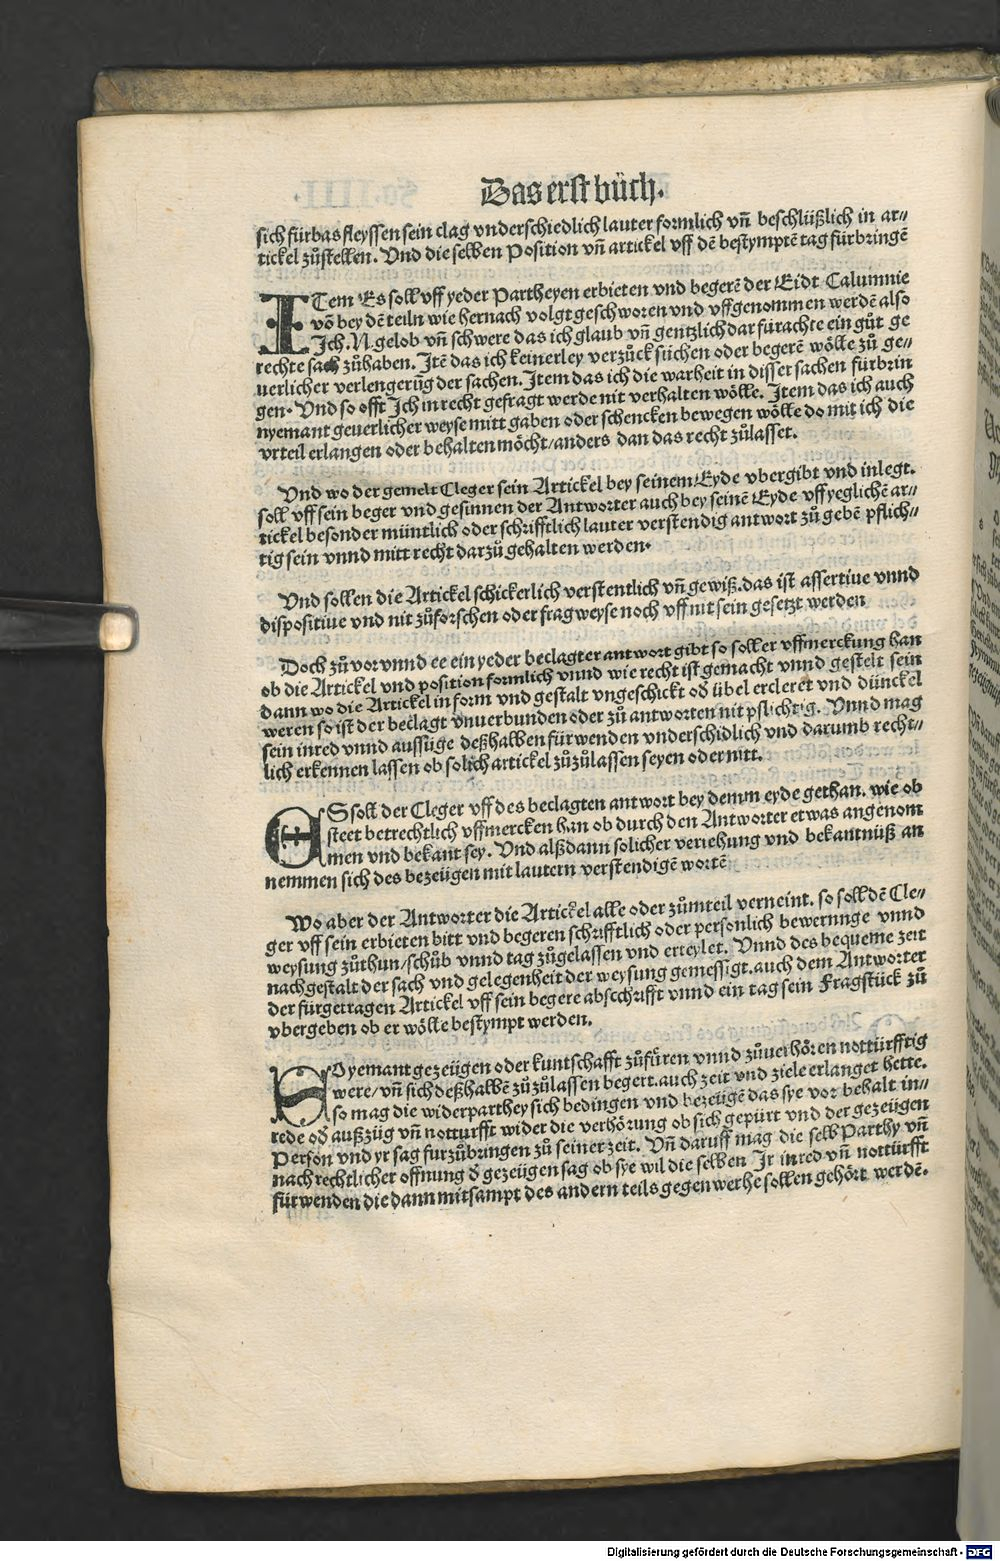 Das erst bůch.
sich fürbas fleyssen sein clag vnderschiedlich lauter formlich vñ beschlüßlich in ar⸗
tickel zůstellen. Vnd die selben Position vñ artickel vff dẽ bestymptẽ tag fürbringẽ
ITem Es soll vff yeder Partheyen erbieten vnd begerẽ der Eidt Calumnie
võ bey dẽ teiln wie hernach volgt geschworen vnd vffgenommen werdẽ also
Jch. N. gelob vñ schwere das ich glaub vñ gentzlich dar für achte ein gůt ge
rechte sach zůhaben. Itẽ das ich keinerley verzůck sůchen oder begerẽ wölle zů ge⸗
uerlicher verlengerũg der sachen. Item das ich die warheit in disser sachen fürbrin
gen. Vnd so offt Jch in recht gefragt werde nit verhalten wölle. Item das ich auch
nyemant geuerlicher weyse mitt gaben oder schencken bewegen wölle do mit ich die
vrteil erlangen oder behalten möcht/anders dan das recht zůlasset.
Vnd wo der gemelt Cleger sein Artickel bey seinem Eyde vbergibt vnd inlegt.
soll vff sein beger vnd gesinnen der Antworter auch bey seinẽ Eyde vff yeglichẽ ar⸗
tickel besonder müntlich oder schrifftlich lauter verstendig antwort zů gebẽ pflich⸗
tig sein vnnd mitt recht darzů gehalten werden.
Vnd sollen die Artickel schickerlich verstentlich vñ gewiß. das ist assertiue vnnd
dispositiue vnd nit zůforschen oder fragweyse noch vff nit sein gesetzt werden
Doch zů vor vnnd ee ein yeder beclagter antwort gibt so soll er vffmerckung han
ob die Artickel vnd position formlich vnnd wie recht ist gemacht vnnd gestelt sein
dann wo die Artickel in form vnd gestalt vngeschickt oð übel ercleret vnd dünckel
weren so ist der beclagt vnuerbunden oder zů antworten nit pflichtig. Vnnd mag
sein inred vnnd aussüge deßhalben fürwenden vnderschidlich vnd darumb recht⸗
lich erkennen lassen ob solich artickel zůzůlassen seyen oder nitt.
ES soll der Cleger vff des beclagten antwort bey demm eyde gethan. wie ob
steet betrechtlich vffmercken han ob durch den Antworter etwas angenom
men vnd bekant sey. Vnd alß dann solicher veriehung vnd bekantnüß an
nemmen sich des bezeügen mit lautern verstendigẽ wortẽ
Wo aber der Antworter die Artickel alle oder zůmteil verneint. so soll dẽ Cle⸗
ger vff sein erbieten bitt vnd begeren schrifftlich oder personlich bewernnge vnnd
weysung zůthun/schůb vnnd tag zůgelassen vnd erteylet. Vnnd des bequeme zeit
nach gestalt der sach vnd gelegenheit der weysung gemessigt. auch dem Antworter
der fürgetragen Artickel vff sein begere abschrifft vnnd ein tag sein Fragstück zů
vbergeben ob er wölle bestympt werden.
SO yemant gezeügen oder kuntschafft zůfüren vnnd zůuerhören nottürfftig
were/vñ sich deßhalbẽ zůzůlassen begert. auch zeit vnd ziele erlanget hette.
so mag die widerparthey sich bedingen vnd bezeügẽ das sye vor behalt in⸗
rede oð außzüg vñ notturfft wider die verhörung ob sich gepürt vnd der gezeügen
Person vnd yr sag furzůbringen zů seiner zeit. Vñ daruff mag die selb Parthy vñ
nach rechtlicher offnung ð gezeügen sag ob sye wil die selben Ir inred vñ nottürfft
fürwenden die dann mitsampt des andern teils gegenwerhe sollen gehört werdẽ.
Digitalisierung gefördert durch die Deutsche Forschungsgemeinschaft - DFG